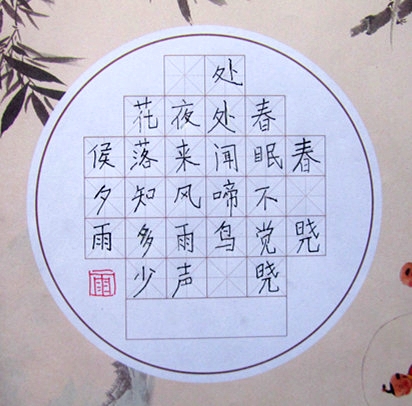 春晓
春眠不觉晓
处处闻啼鸟
夜来风雨声
花落知多少
侯夕雨
雨